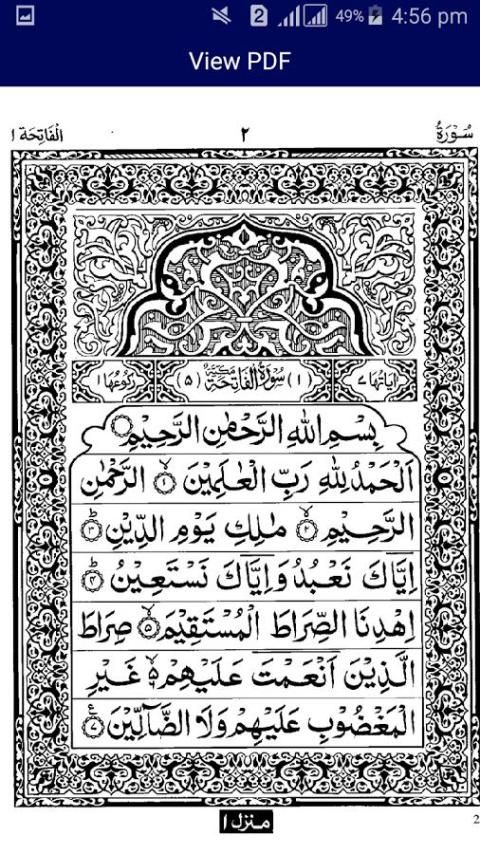 49% 4:56 pm
2
View PDF
سُوْرَةُ ٢ الْفَاتِحَة ١
اٰيَاتُهَا ٧ (١) سُوْرَةُ الْفَاتِحَةِ مَكِّيَّةٌ (٥) رُكُوْعُهَا ١
بِسْمِ اللّٰهِ الرَّحْمٰنِ الرَّحِيْمِ
اَلْحَمْدُ لِلّٰهِ رَبِّ الْعٰلَمِيْنَ ۙ﴿١﴾ الرَّحْمٰنِ
الرَّحِيْمِ ۙ﴿٢﴾ مٰلِكِ يَوْمِ الدِّيْنِ ؕ﴿٣﴾
اِيَّاكَ نَعْبُدُ وَاِيَّاكَ نَسْتَعِيْنُ ؕ﴿٤﴾
اِهْدِنَا الصِّرَاطَ الْمُسْتَقِيْمَ ۙ﴿٥﴾ صِرَاطَ
الَّذِيْنَ اَنْعَمْتَ عَلَيْهِمْ ۙ۬ۙ﴿٦﴾ غَيْرِ
الْمَغْضُوْبِ عَلَيْهِمْ وَلَا الضَّآلِّيْنَ ﴿٧﴾ ع
منزل ١
2